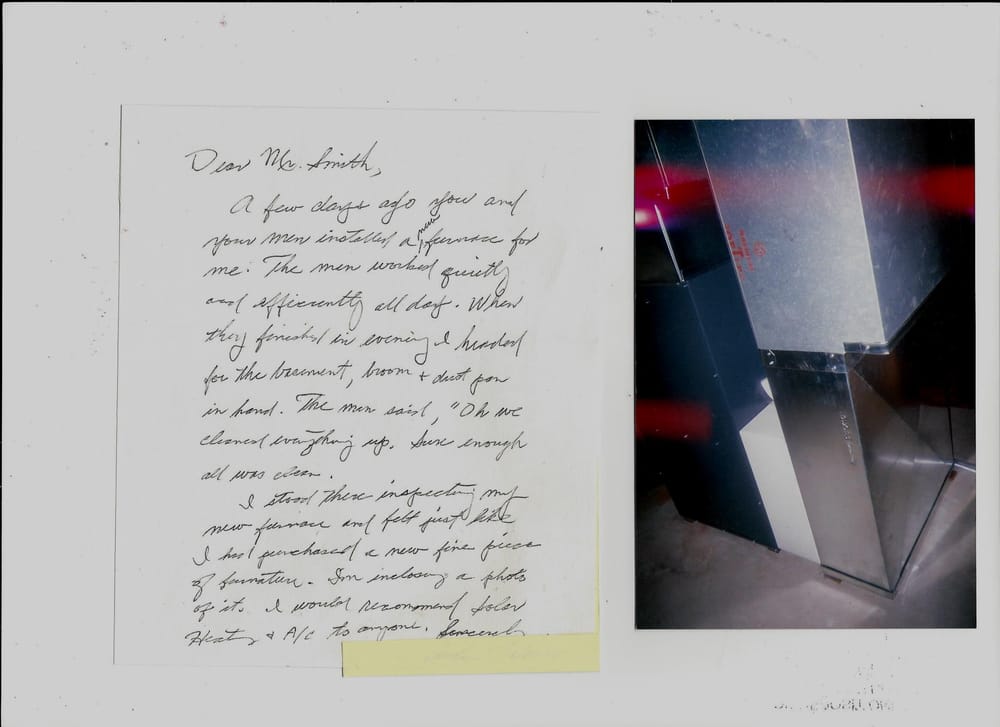 Dear Mr. Smith,
A few days ago you and
your men installed a new furnace for
me. The men worked quietly
and efficiently all day. When
they finished in evening I headed
for the basement, broom + dust pan
in hand. The men said, "Oh we
cleaned everything up. Sure enough
all was clean.
I stood there inspecting my
new furnace and felt just like
I had purchased a new fine piece
of furniture. I'm inclosing a photo
of it. I would recommend Solar
Heating & A/C to anyone. Sincerely